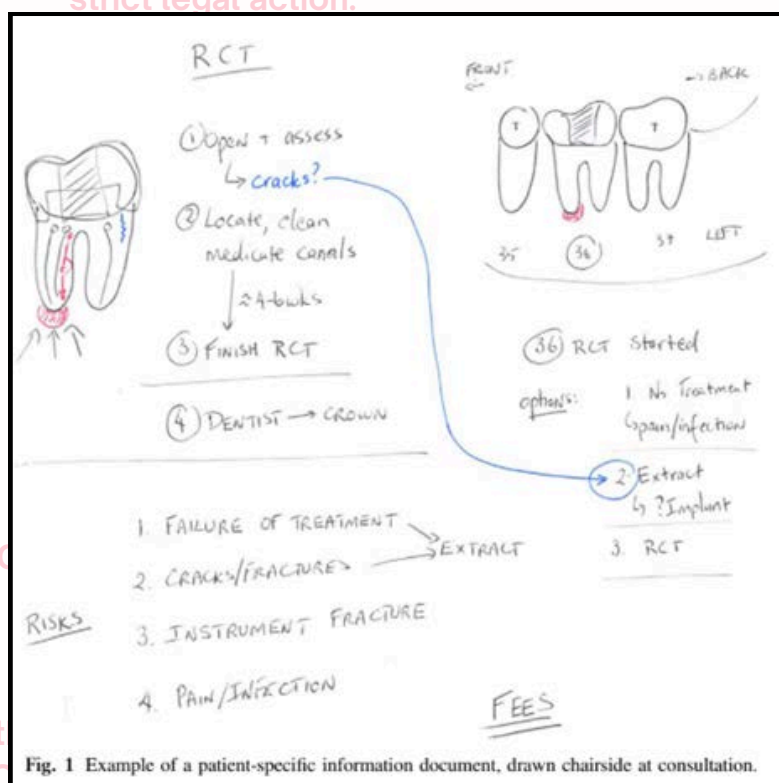 strict legal action.
RCT
① Open + assess
↳ cracks?
② Locate, clean
medicate canals
≈ 4-6wks
③ FINISH RCT
④ DENTIST → CROWN
FRONT
→ BACK
T
T
35
36
37
LEFT
36 RCT Started
options:
1 No Treatment
↳ pain/infection
2. Extract
↳ ? Implant
3. RCT
RISKS
1. FAILURE OF TREATMENT
2. CRACKS/FRACTURES
→ EXTRACT
3. INSTRUMENT FRACTURE
4. PAIN/INFECTION
FEES
Fig. 1 Example of a patient-specific information document, drawn chairside at consultation.